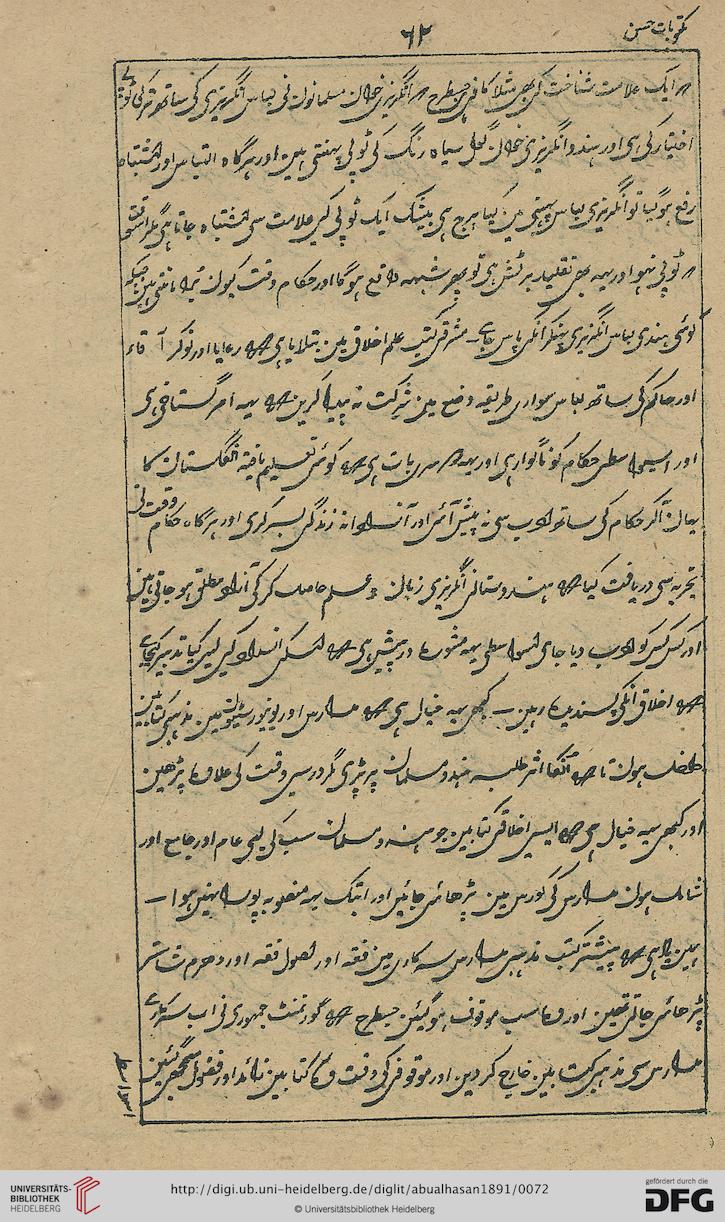 مکتوبات حسن
٦٢
ایک علامت شناخت کی بھی مثلا کافی جسطرح انگریزی خوان مسلمانون نی لباس انگریزی کی ساتھ ترکی ٹوپی
اختیار کی ہی اور ہندو انگریزی خوان گول سیاہ رنگ کی ٹوپی پہنتی ہین اور ہرگاہ التباس اور اشتباہ
رفع ہوگیا تو انگریزی لباس پہننی مین کیا ہرج ہی بیشک ایک ٹوپی کی علامت سی اشتباہ جاتا ہی مگر اسوقت
ٹوپی نہو اور یہہ بھی تقلید برٹش ہی تو پھر شبہہ واقع ہوگا اور حکام وقت کیون برا مانتی ہین جبکہ
کوئی ہندی لباس انگریزی پہنکر انکی پاس جاے۔ مشرقی کتب علم اخلاق مین بتلایا ہی کہ رعایا اور نوکر آقاء
اور حاکم کی ساتھ لباس سواری طریقہ وضع مین شرکت نہ پیدا کرین کہ یہہ امر گستاخی ہی
اور اسیواسطی حکام کو ناگوار ہی اور یہہ دوسری بات ہی کہ کوئی تعلیم یافتہ انگلستان کا
یہان آکر حکام کی ساتھ ادب سی نہ پیش آئی اور آزادانہ زندگی بسر کری اور ہرگاہ حکام وقت نی
تجربہ سی دریافت کیا کہ ہندوستانی انگریزی زبان و علم حاصل کرکی آزاد مطلق ہوجاتی ہین
اور کس کس کو ادب دیا جای اسواسطی یہہ مشورہ درپیش ہی کہ اسکی انسداد کی لیی کیا تدبیر کیجاے
کہ اخلاق انکی پسندیدہ رہین۔ کبھی یہہ خیال ہی کہ مدارس اور یونیورسیٹیون مین مذہبی کتابین
داخل ہون تاکہ انکا اثر طلبہ ہندو مسلمان پر پڑی مگر درسی وقت کی علاوہ پڑھین
اور کبھی یہہ خیال ہی کہ ایسی اخلاقی کتابین جو ہندو مسلمان سب کی لیی عام اور جامع اور
شامل ہون مدارس کی کورس مین پڑھائی جائین اور ابتک یہہ منصوبہ پورا نہین ہوا۔
ہمین یاد ہی کہ پیشتر کتب مذہبی مدارس سرکاری مین فقہ اور اصول فقہ اور دھرم شاستر
پڑھائی جاتی تھین اور وہ سب موقوف ہوگئین جسطرح کہ گورنمنٹ جمہوری نی اب سرکاری
مدارس سی مذہبی کتابین خارج کردین اور موقوفی کی وقت وہ کتابین زائد اور فضول سمجھی گئین
اسواسطی
UNIVERSITÄTS-
BIBLIOTHEK
HEIDELBERG
http://digi.ub.uni-heidelberg.de/diglit/abualhasan1891/0072
© Universitätsbibliothek Heidelberg
gefördert durch die
DFG